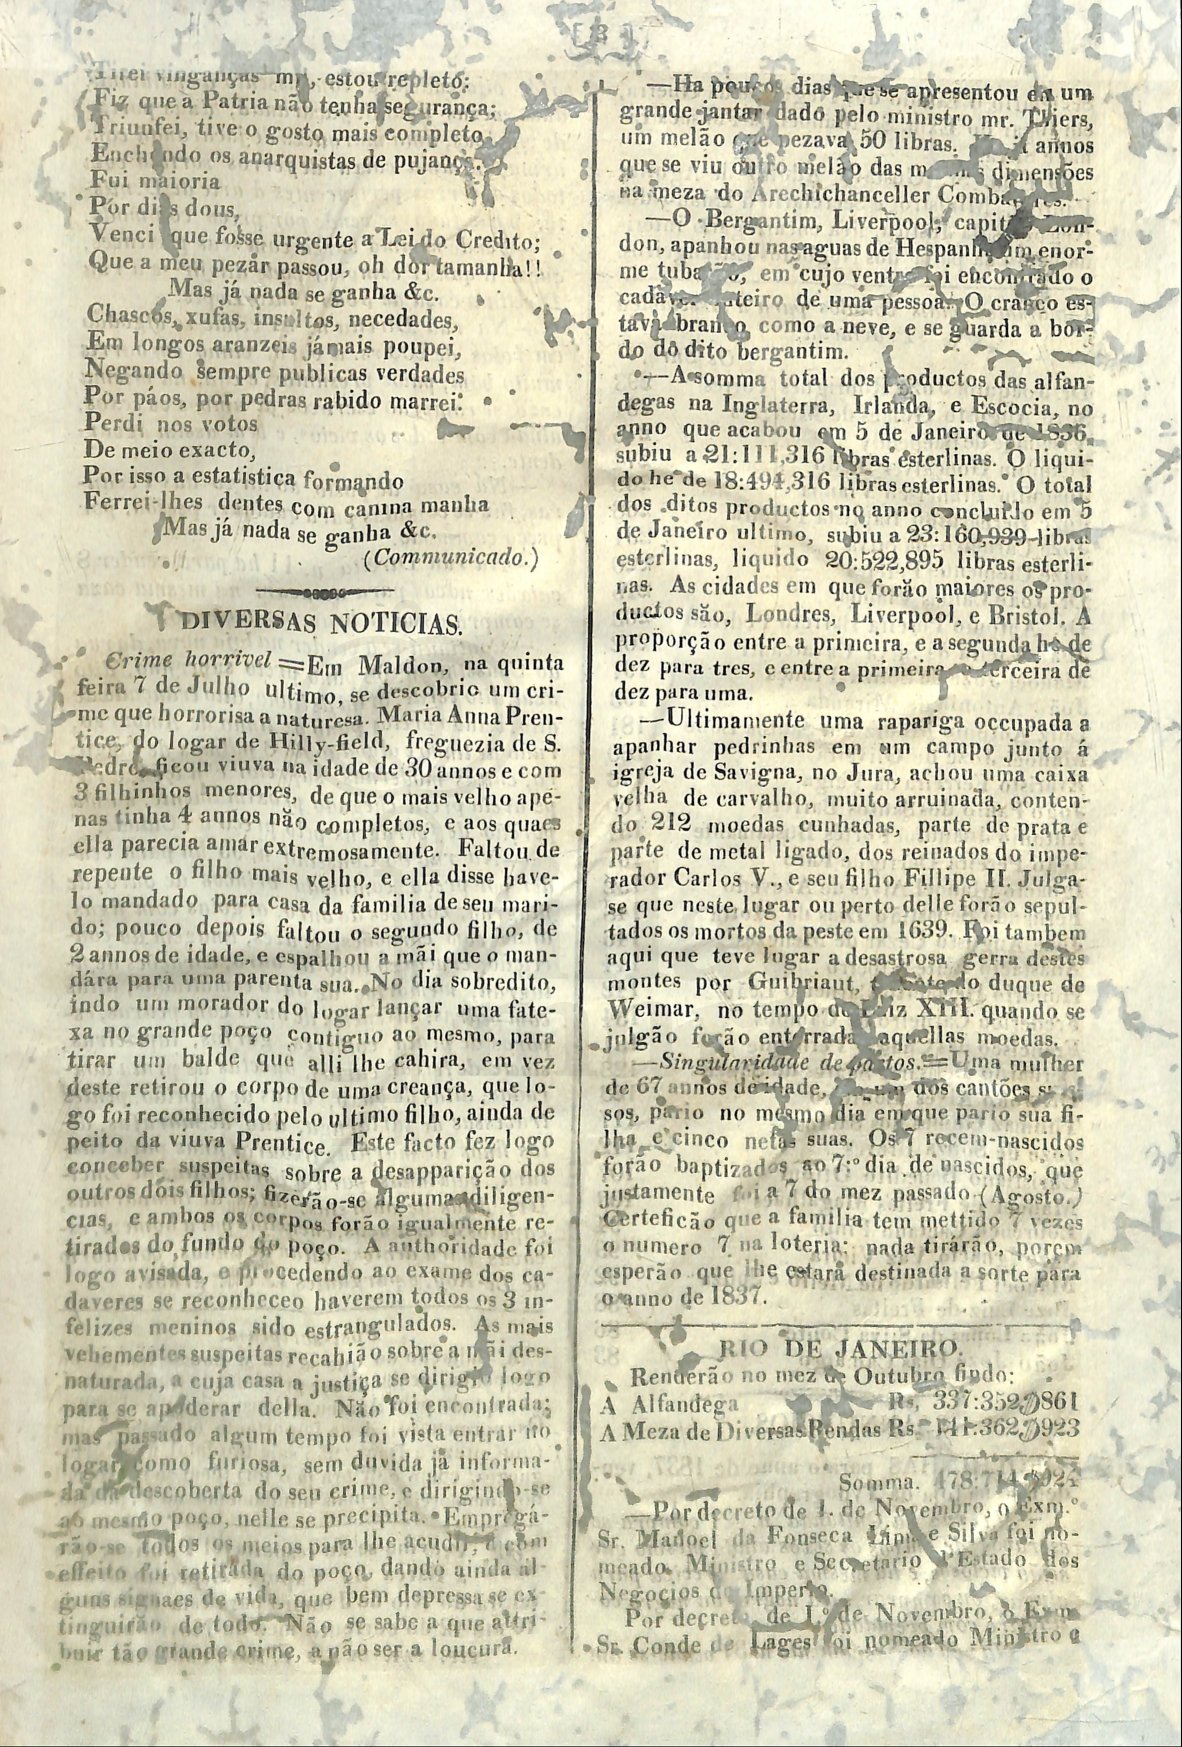 [ 3 ]
Tirei vinganças mil, estou repleto:
Fiz que a Patria não tenha segurança;
Triunfei, tive o gosto mais completo
Enchendo os anarquistas de pujança.
Fui maioria
Por dias dous,
Venci que fosse urgente a Lei do Credito;
Que a meu pezar passou, oh dor tamanha!!
Mas já nada se ganha &c.
Chascos, xufas, insultos, necedades,
Em longos aranzeis jámais poupei,
Negando sempre publicas verdades
Por páos, por pedras rabido marrei:
Perdi nos votos
De meio exacto,
Por isso a estatistica formando
Ferrei-lhes dentes com canina manha
Mas já nada se ganha &c.
(Communicado.)
DIVERSAS NOTICIAS.
Crime horrivel = Em Maldon, na quinta
feira 7 de Julho ultimo, se descobrio um cri-
me que horrorisa a naturesa. Maria Anna Pren-
tice, do logar de Hilly-field, freguezia de S.
Pedro, ficou viuva na idade de 30 annos e com
3 filhinhos menores, de que o mais velho ape-
nas tinha 4 annos não completos, e aos quaes
ella parecia amar extremosamente. Faltou de
repente o filho mais velho, e ella disse have-
lo mandado para casa da familia de seu mari-
do; pouco depois faltou o segundo filho, de
2 annos de idade, e espalhou a mãi que o man-
dára para uma parenta sua. No dia sobredito,
indo um morador do logar lançar uma fate-
xa no grande poço contiguo ao mesmo, para
tirar um balde que alli lhe cahira, em vez
deste retirou o corpo de uma creança, que lo-
go foi reconhecido pelo ultimo filho, ainda de
peito da viuva Prentice. Este facto fez logo
conceber suspeitas sobre a desapparição dos
outros dois filhos; fizerão-se algumas diligen-
cias, e ambos os corpos forão igualmente re-
tirados do fundo do poço. A authoridade foi
logo avisada, e procedendo ao exame dos ca-
daveres se reconheceo haverem todos os 3 in-
felizes meninos sido estrangulados. As mais
vehementes suspeitas recahião sobre a mãi des-
naturada, a cuja casa a justiça se dirigio logo
para se apoderar della. Não foi encontrada;
mas passado algum tempo foi vista entrar no
logar como furiosa, sem duvida já informa-
da da descoberta do seu crime, e dirigindo-se
ao mesmo poço, nelle se precipita. Empregá-
rão-se todos os meios para lhe acudir, e com
effeito foi retirada do poço, dando ainda al-
guns signaes de vida, que bem depressa se ex-
tinguirão de todo. Não se sabe a que attri-
buir tão grande crime, a não ser a loucura.
—Ha poucos dias que se apresentou em um
grande jantar dado pelo ministro mr. Thiers,
um melão que pezava 50 libras. annos
que se viu outro melão das mesmas dimensões
na meza do Arechichanceller
—O Bergantim, Liverpool, capitão Lon-
don, apanhou nas aguas de Hespanha um enor-
me tubarão, em cujo ventre foi encontrado o
cadaver inteiro de uma pessoa. O craneo es-
tava branco como a neve, e se guarda a bor-
do do dito bergantim.
—A somma total dos productos das alfan-
degas na Inglaterra, Irlanda, e Escocia, no
anno que acabou em 5 de Janeiro de 1836,
subiu a 21:111,316 libras esterlinas. O liqui-
do he de 18:494,316 libras esterlinas. O total
dos ditos productos no anno concluido em 5
de Janeiro ultimo, subiu a 23:160,939 libras
esterlinas, liquido 20:522,895 libras esterli-
nas. As cidades em que forão maiores os pro-
ductos são, Londres, Liverpool, e Bristol. A
proporção entre a primeira, e a segunda he de
dez para tres, e entre a primeira e terceira de
dez para uma.
—Ultimamente uma rapariga occupada a
apanhar pedrinhas em um campo junto á
igreja de Savigna, no Jura, achou uma caixa
velha de carvalho, muito arruinada, conten-
do 212 moedas cunhadas, parte de prata e
parte de metal ligado, dos reinados do impe-
rador Carlos V., e seu filho Fillipe II. Julga-
se que neste lugar ou perto delle forão sepul-
tados os mortos da peste em 1639. Foi tambem
aqui que teve lugar a desastrosa gerra destes
montes por Guibriaut, do duque de
Weimar, no tempo de Luiz XIII. quando se
julgão forão enterradas aquellas moedas.
—Singularidade de partos. = Uma mulher
de 67 annos de idade, em um dos cantões suis-
sos, pario no mesmo dia em que pario sua fi-
lha e cinco netas suas. Os 7 recem-nascidos
forão baptizados ao 7.º dia de nascidos, que
justamente foi a 7 do mez passado (Agosto.)
Certeficão que a familia tem mettido 7 vezes
o numero 7 na loteria; nada tirárão, porem
esperão que lhe estará destinada a sorte para
o anno de 1837.
RIO DE JANEIRO.
Renderão no mez de Outubro findo:
A Alfandega Rs. 337:352$861
A Meza de Diversas Rendas Rs. 141:362$923
Somma. 478:714$924
—Por decreto de 1. de Novembro, o Exm.º
Sr. Manoel da Fonseca Lima e Silva foi no-
meado Ministro e Secretario d'Estado dos
Negocios do Imperio.
Por decreto de 1.º de Novembro, o Exm.
Sr. Conde de Lages foi nomeado Ministro e